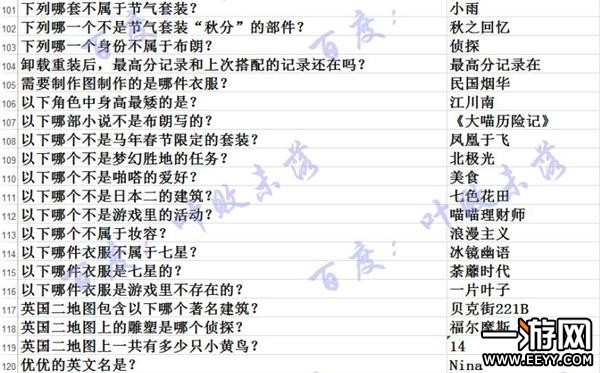 101 下列哪套不属于节气套装? 小雨
102 下列哪一个不是节气套装“秋分”的部件? 秋之回忆
103 下列哪一个身份不属于布朗? 侦探
104 卸载重装后,最高分记录和上次搭配的记录还在吗? 最高分记录在
105 需要制作图制作的是哪件衣服? 民国烟华
106 以下角色中身高最矮的是? 江川南
107 以下哪部小说不是布朗写的? 《大喵历险记》
108 以下哪个不是马年春节限定的套装? 凤凰于飞
109 以下哪个不是梦幻胜地的任务? 北极光
110 以下哪个不是啪嗒的爱好? 美食
111 以下哪个不是日本二的建筑? 七色花田
112 以下哪个不是游戏里的活动? 喵喵理财师
113 以下哪个不属于妆容? 浪漫主义
114 以下哪件衣服不属于七星? 冰镜幽语
115 以下哪件衣服是七星的? 荼蘼时代
116 以下哪件衣服是游戏里不存在的? 一片叶子
117 英国二地图包含以下哪个著名建筑? 贝克街221B
118 英国二地图上的雕塑是哪个侦探? 福尔摩斯
119 英国二地图上一共有多少只小黄鸟? 14
120 优优的英文名是? Nina
百度:叶败未落
百度:叶败未落
一游网
WWW.EEYY.COM